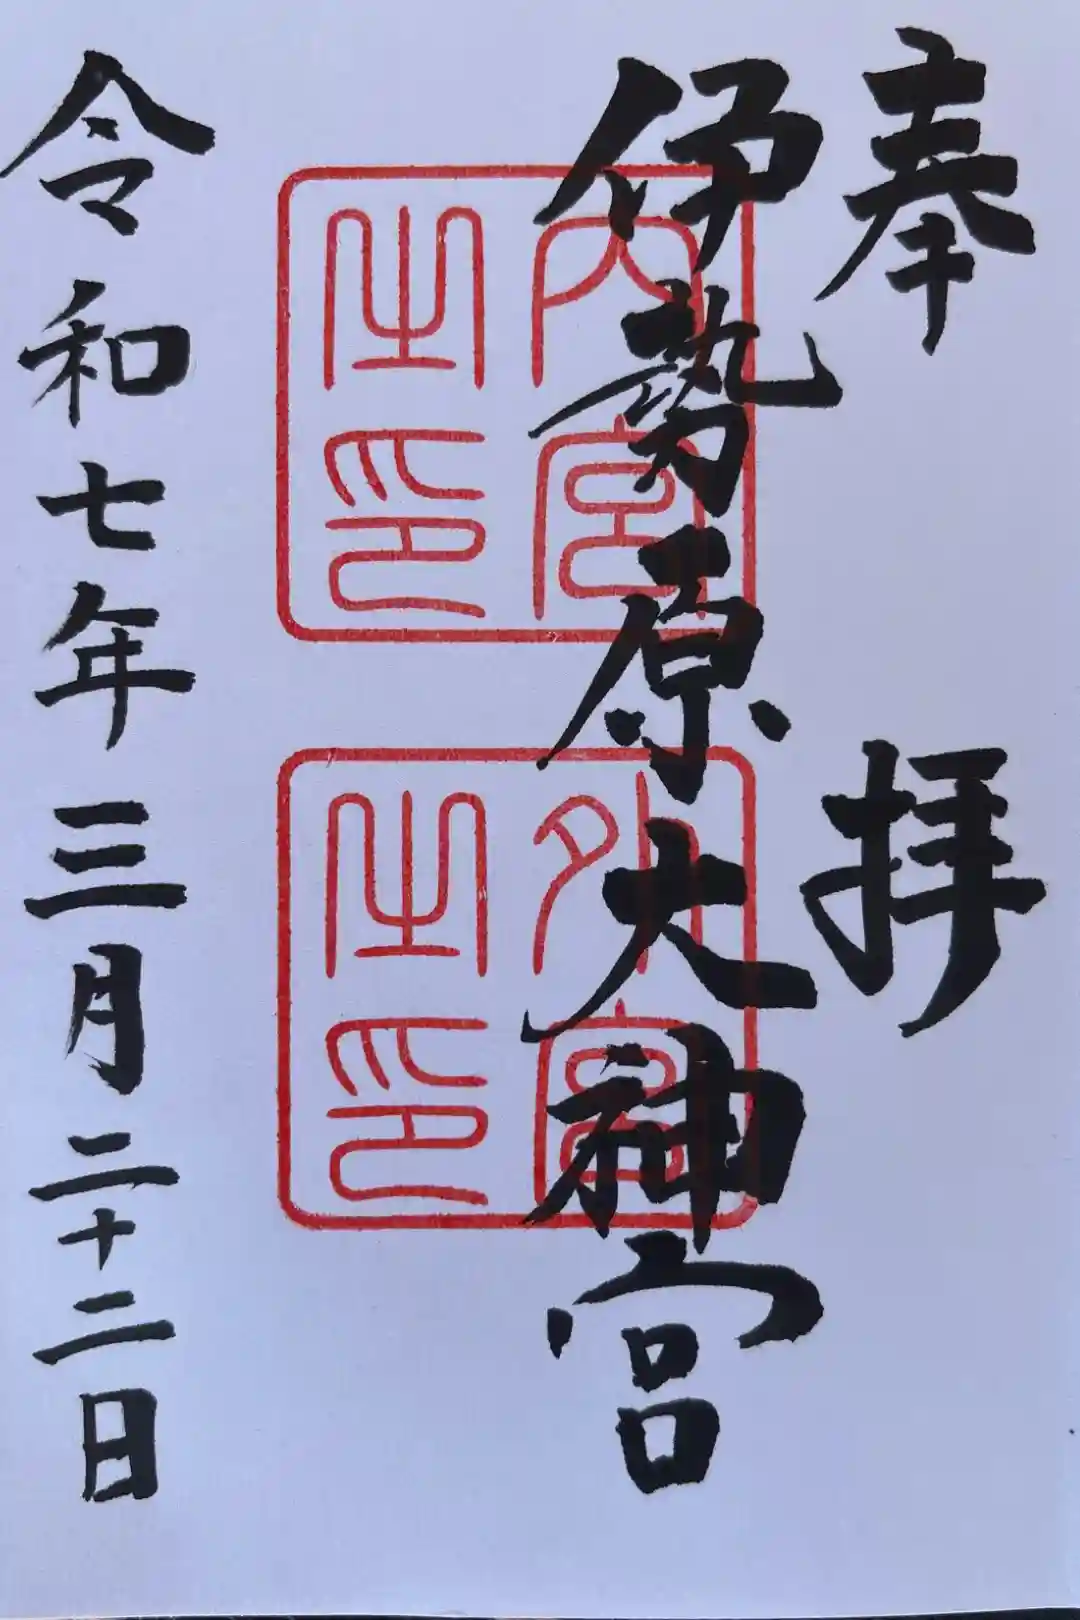 奉拝
伊勢原大神宮
内宮之印
外宮之印
令和七年三月二十二日